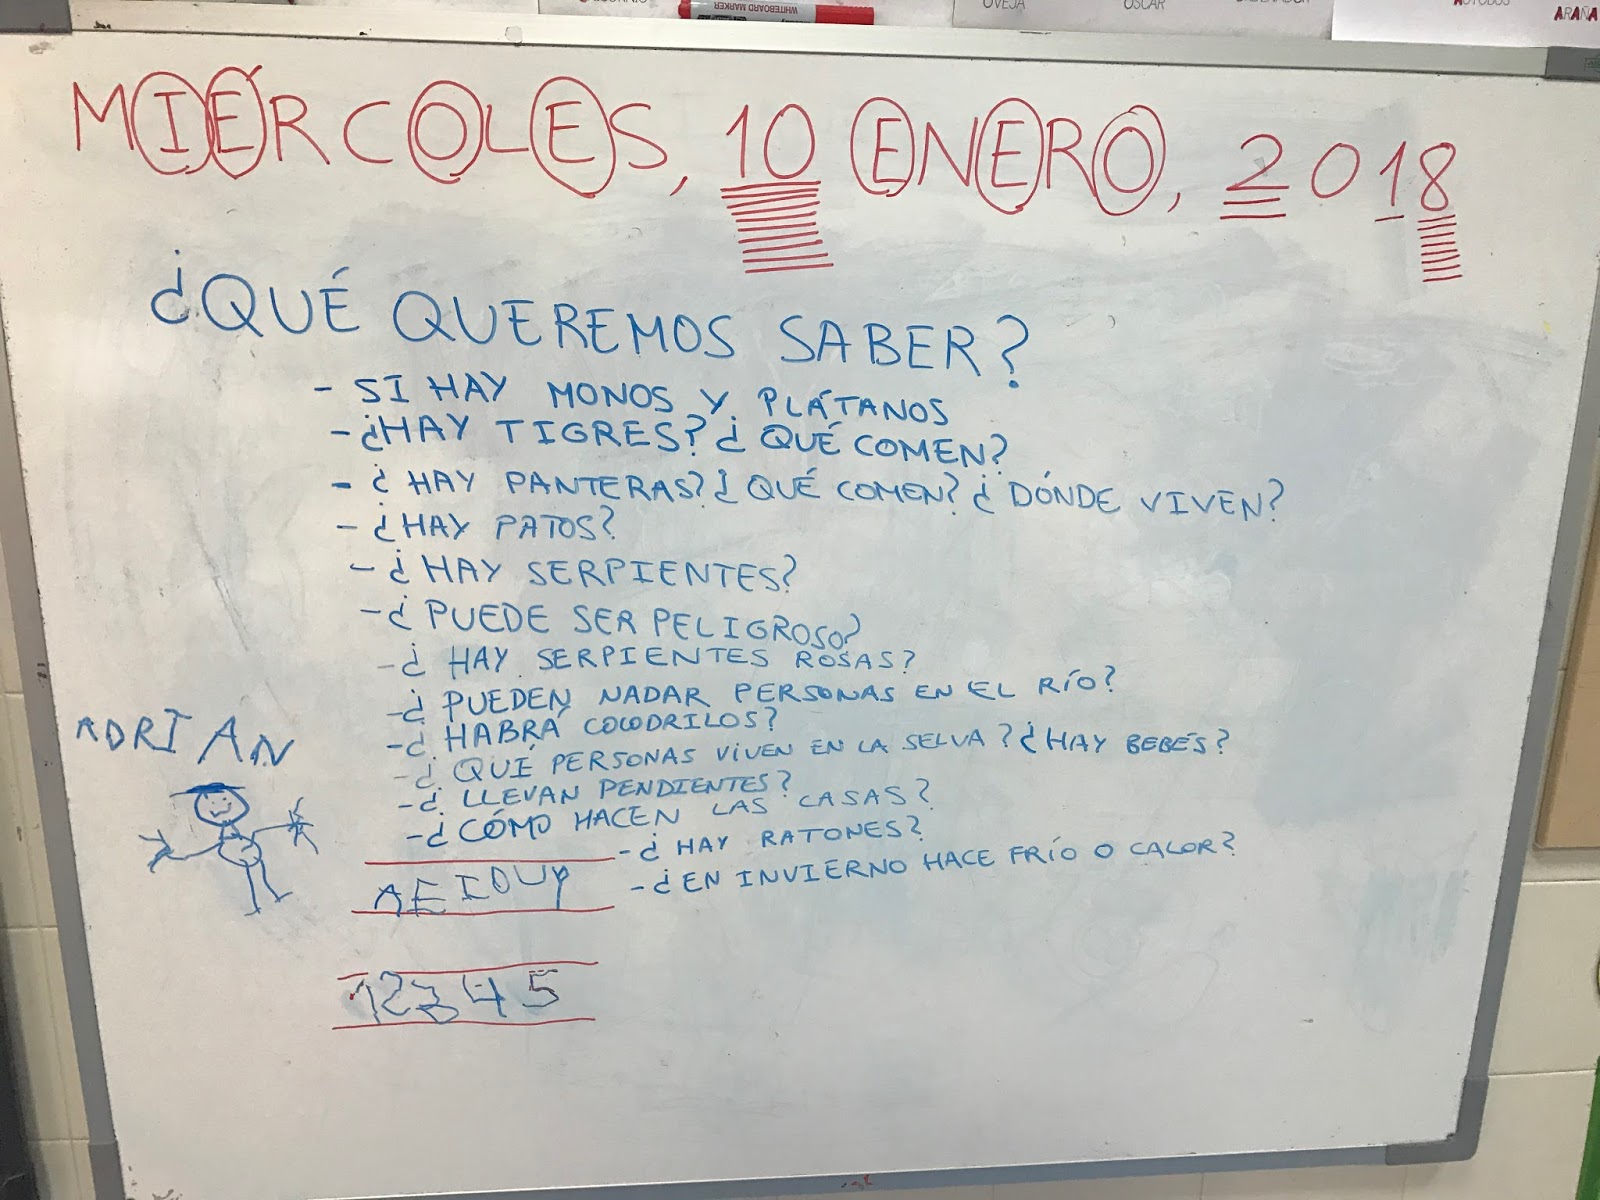 WHITEBOARD MARKER
OVEJA
OSCAR
ARAÑA
MIÉRCOLES, 10 ENERO, 2018
¿QUÉ QUEREMOS SABER?
- SI HAY MONOS Y PLÁTANOS
- ¿HAY TIGRES? ¿QUÉ COMEN?
- ¿HAY PANTERAS? ¿QUÉ COMEN? ¿DÓNDE VIVEN?
- ¿HAY PATOS?
- ¿HAY SERPIENTES?
- ¿PUEDE SER PELIGROSO?
- ¿HAY SERPIENTES ROSAS?
- ¿PUEDEN NADAR PERSONAS EN EL RÍO?
- ¿HABRÁ COCODRILOS?
- ¿QUÉ PERSONAS VIVEN EN LA SELVA? ¿HAY BEBÉS?
- ¿LLEVAN PENDIENTES?
- ¿CÓMO HACEN LAS CASAS?
- ¿HAY RATONES?
- ¿EN INVIERNO HACE FRÍO O CALOR?
ADRIAN
AEIOU
12345